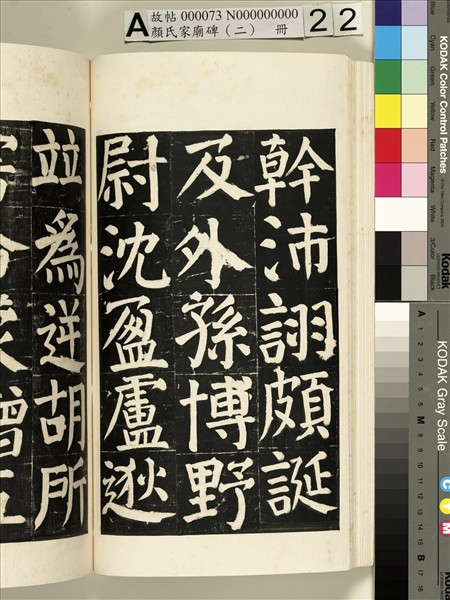 A 故帖 000073 N000000000 22
顏氏家廟碑（二） 冊
幹沛詡頗誕
及外孫博野
尉沈盈盧逖
並為逆胡所
KODAK Color Control Patches
Blue
Cyan
Green
Yellow
Red
Magenta
White
3/Color
Black
Kodak
KODAK Gray Scale
A 1 2 3 4 5 6 M 8 9 10 11 12 13 14 15 B 17 18
C Y M
Kodak